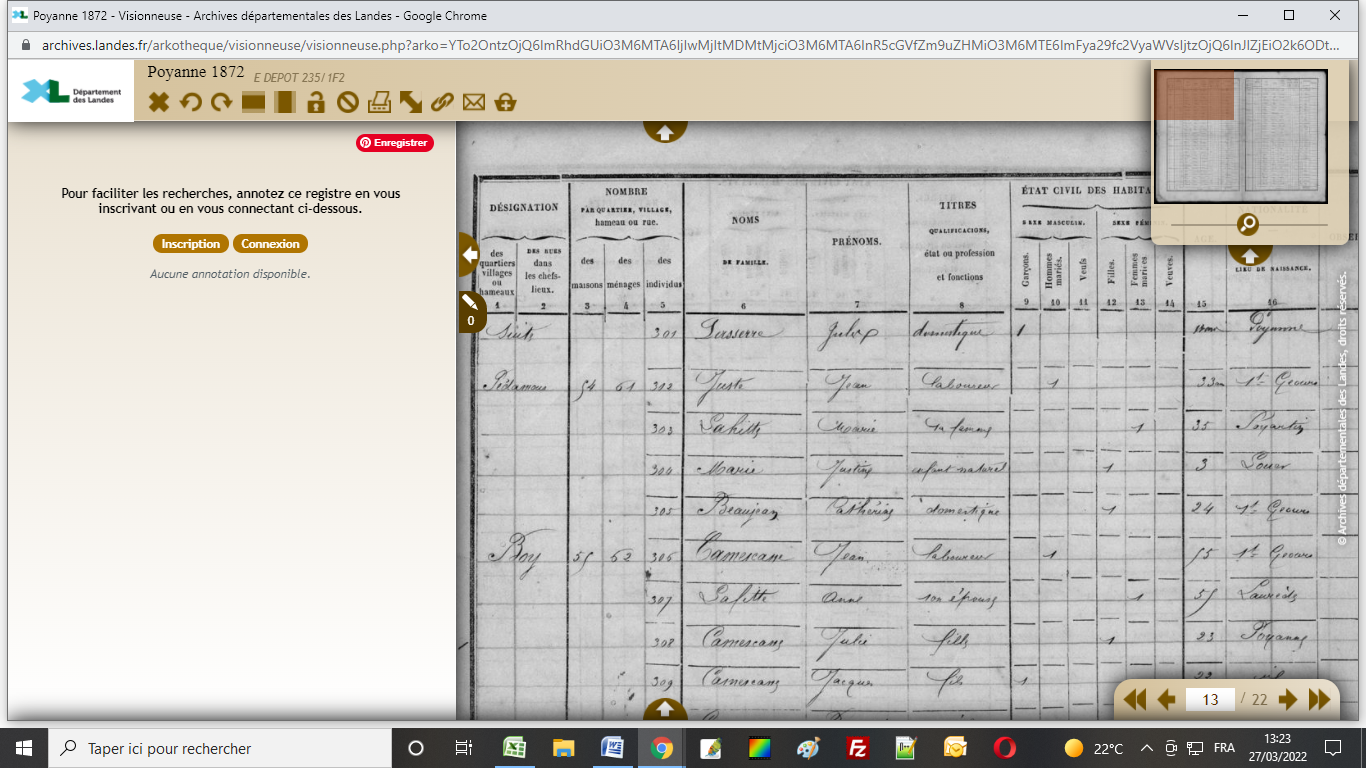 Poyanne 1872 - Visionneuse - Archives départementales des Landes - Google Chrome
archives.landes.fr/arkotheque/visionneuse/visionneuse.php?arko=
Département des Landes
Poyanne 1872 E DEPOT 235/1F2
Enregistrer
Pour faciliter les recherches, annotez ce registre en vous
inscrivant ou en vous connectant ci-dessous.
Inscription Connexion
Aucune annotation disponible.
0
DÉSIGNATION
des quartiers villages ou hameaux
DES RUES dans les chefs-lieux.
NOMBRE
PAR QUARTIER, VILLAGE,
hameau ou rue.
des maisons
des ménages
des individus
NOMS
DE FAMILLE.
PRÉNOMS.
TITRES
QUALIFICATIONS,
état ou profession
et fonctions
ÉTAT CIVIL DES HABITA
SEXE MASCULIN.
Garçons.
Hommes mariés.
Veufs
Filles.
Femmes mariées.
Veuves.
LIEU DE NAISSANCE.
1 2 3 4 5 6 7 8 9 10 11 12 13 14 15 16
301 domestique 1 Poyanne
54 61 302 Juste Jean laboureur 1 33 St Geours
303 Lahitte Marie sa femme 1 35 Poyartin
304 Marie Justine enfant naturel 1 3 Louer
305 Beaujean Catherine domestique 1 24 St Geours
Boy 55 62 306 Camescasse Jean laboureur 1 55 St Geours
307 Lafitte Anne son épouse 1 55 Laurède
308 Camescasse Julie fille 1 23 Poyanne
309 Camescasse Jacques fils 1
© Archives départementales des Landes, droits réservés.
13 / 22
Taper ici pour rechercher
22°C
FRA
13:23
27/03/2022